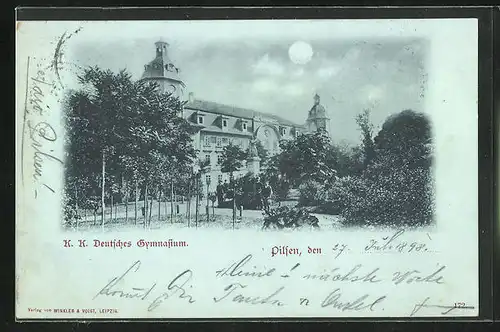 K. K. Deutsches Gymnasium.
Pilsen, den 27. Juli 1898.
Kleine! nächste Woche
kommt Dir Tante u. Onkel.
Verlag von WINKLER & VOIGT, LEIPZIG.
172